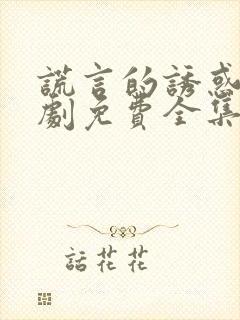 謊言的誘惑
劇免費全集
話花花